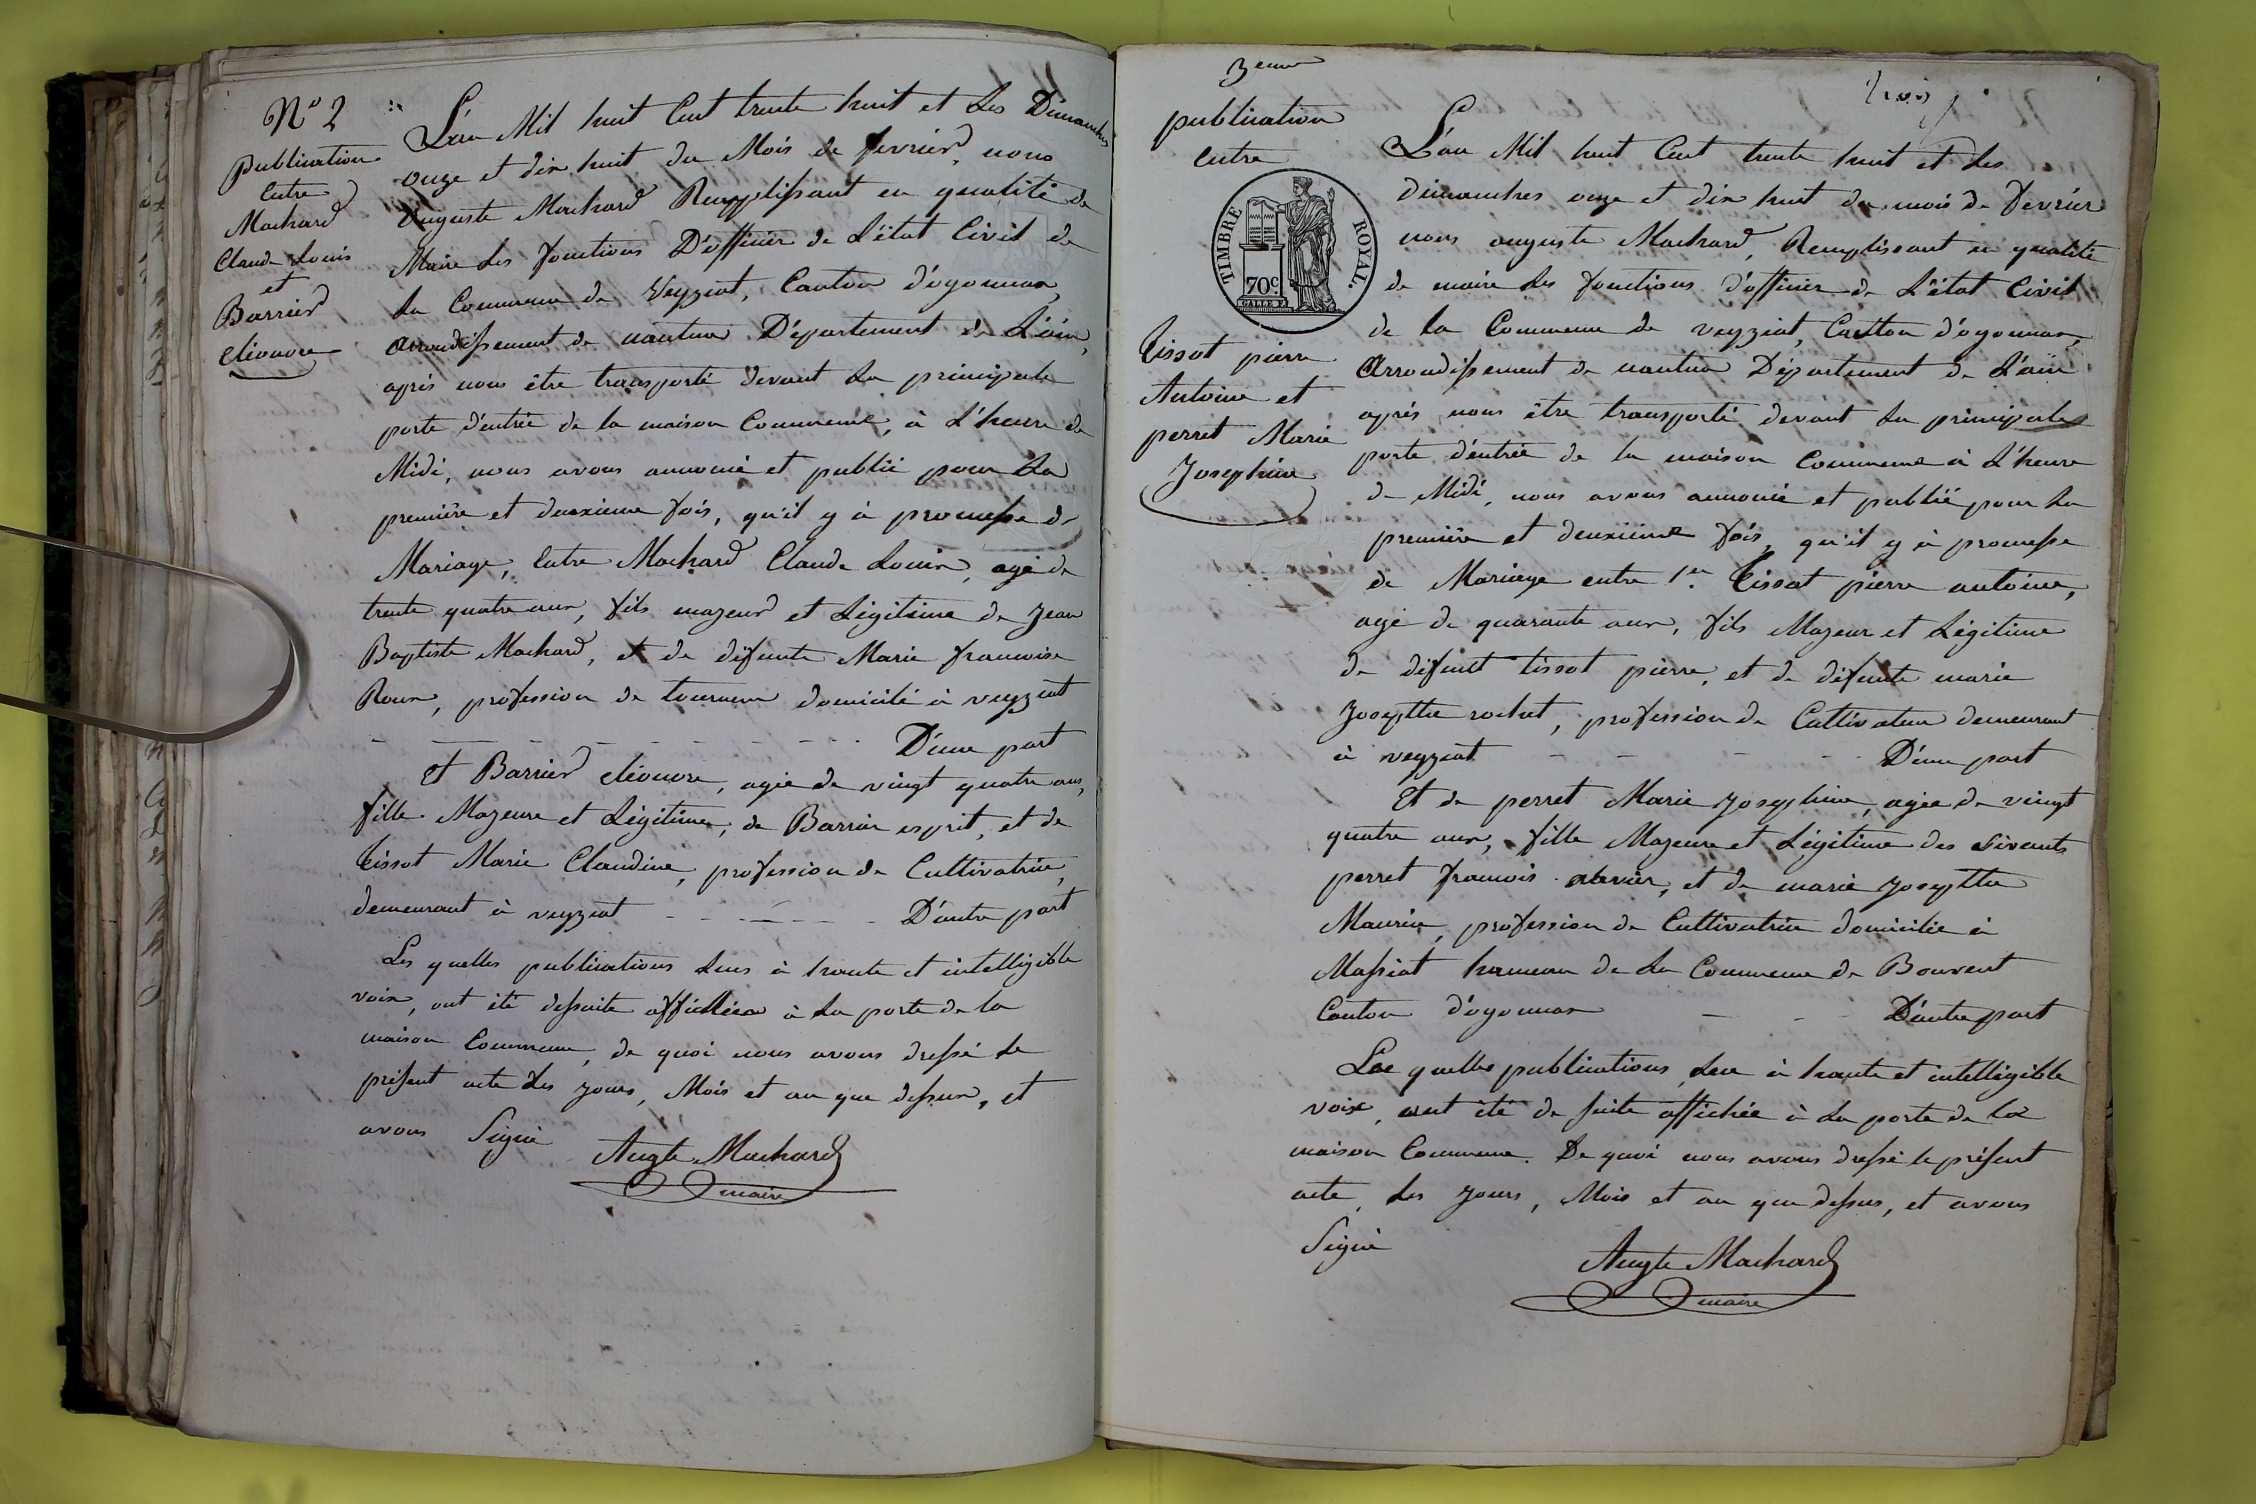 N° 2
Publication
Entre
Machard
Claude Louis
et
Barrier
eléonore
L'an Mil huit Cent trente huit et Les Dimanches
onze et dix huit du Mois de fevrier, nous
Auguste Machard Remplissant en qualité de
Maire Les fonctions D'officier de L'état Civil de
La Commune de Veyziat, Canton d'oyonnax,
Arrondissement de nantua Département de L'ain,
après nous être transporté devant La principale
porte d'entrée de la maison Commune, à L'heure de
Midi, nous avons annoncé et publié pour La
première et deuxieme fois, qu'il y à promesse de
Mariage, Entre Machard Claude Louis, agé de
trente quatre ans, fils majeur et Légitime de Jean
Baptiste Machard, et de défunte Marie francoise
Roux, profession de tourneur domicilié à veyziat
D'une part
Et Barrier eléonore, agée de vingt quatre ans,
fille Majeure et Légitime, de Barrier esprit, et de
Tissot Marie Claudine, profession de Cultivatrice,
demeurant à veyziat D'autre part
Les quelles publications Lues à haute et intelligible
voix, ont été dessuite affichées à La porte de la
maison Commune, de quoi nous avons dressé le
présent acte Les jours, Mois et an que dessus, et
avons Signé
Augte Machard
maire
3eme
publication
entre
TIMBRE ROYAL.
70c.
Tissot pierre
Antoine et
perret Marie
Josephine
trois
L'an Mil huit Cent trente huit et Les
dimanches onze et dix huit du mois de Fevrier
nous auguste Machard, Remplissant en qualité
de maire Les fonctions d'officier de L'état Civil
de La Commune de veyziat, Canton d'oyonnax,
Arrondissement de nantua Département de L'ain
après nous être transporté devant La principale
porte d'entrée de la maison Commune à L'heure
de Midi, nous avons annoncé et publié pour La
première et deuxiéme fois, qu'il y à promesse
de Mariage entre 1er. Tissot pierre antoine,
agé de quarante ans, fils Majeur et Légitime
de défunt tissot pierre, et de défunte marie
Josepthe rochet, profession de Cultivateur demeurant
à veyziat D'une part
Et de perret Marie Josephine, agée de vingt
quatre ans, fille Majeure et Légitime des vivants
perret francois et de marie Josepthe
Maurin, profession de Cultivatrice domiciliée à
Massiat hameau de La Commune de Bouvent
Canton d'oyonnax D'autre part
Les quelles publications Lue à haute et intelligible
voix, ont été de suite affichée à La porte de La
maison Commune. De quoi nous avons dressé le présent
acte, Les jours, Mois et an que dessus, et avons
Signé
Augte Machard
maire